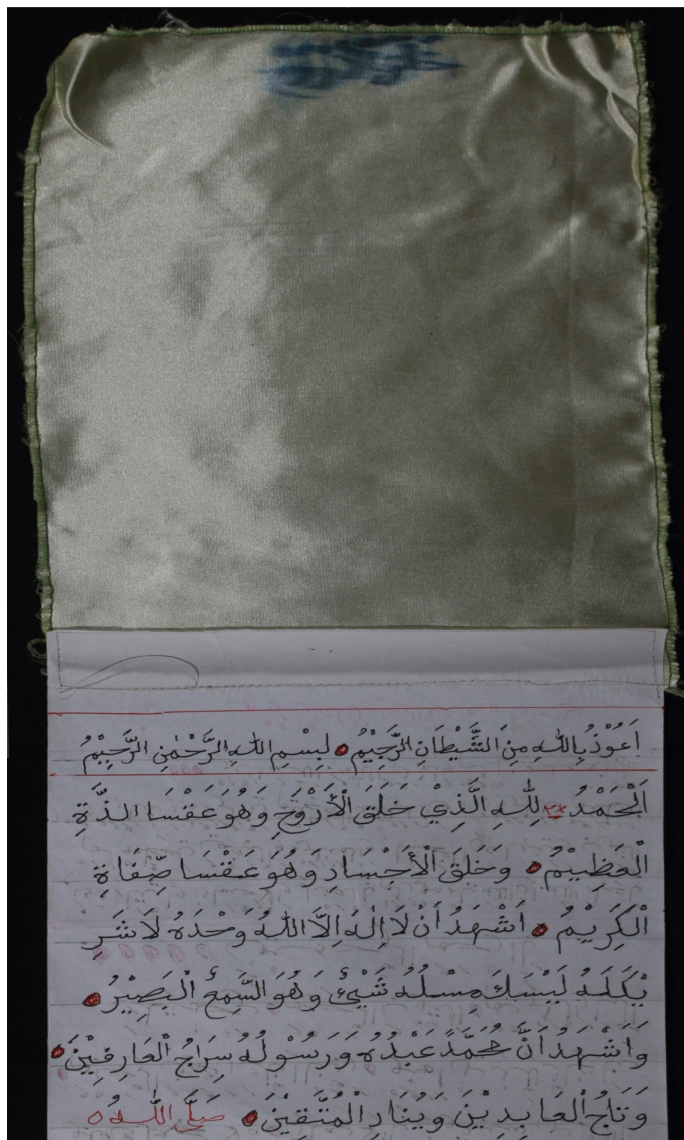 اَعُوْذُ بِاللّٰهِ مِنَ الشَّيْطَانِ الرَّجِيْمُ لِبِسْمِ اللّٰهِ الرَّحْمٰنِ الرَّحِيْمُ
اَلْحَمْدُ لِلّٰهِ الَّذِيْ خَلَقَ الْأَرْوَحِ وَهُوَ عَقْسَا الذَّةِ
الْعَظِيْمُ وَخَلَقَ الْأَجْسَادِ وَهُوَ عَقْسَا صِّفَاةِ
الْكَرِيْمُ اَشْهَدُ اَنْ لَا اِلٰهَ اِلَّا اللّٰهُ وَحْدَهُ لَا شَرِ
يْكَلَهُ لَيْسَكَ مِسْلُهُ شَيْئٌ وَهُوَ السَّمِعُ الْبَصِيْرُ
وَاَشْهَدُ اَنَّ مُحَمَّدً عَبْدُهُ وَرَسُوْلُهُ سِرَاجُ الْعَارِفِيْنَ
وَتَاجُ الْعَابِدِيْنَ وَيُنَادِ الْمُتَّقِيْنَ صَلَّى اللّٰهُ